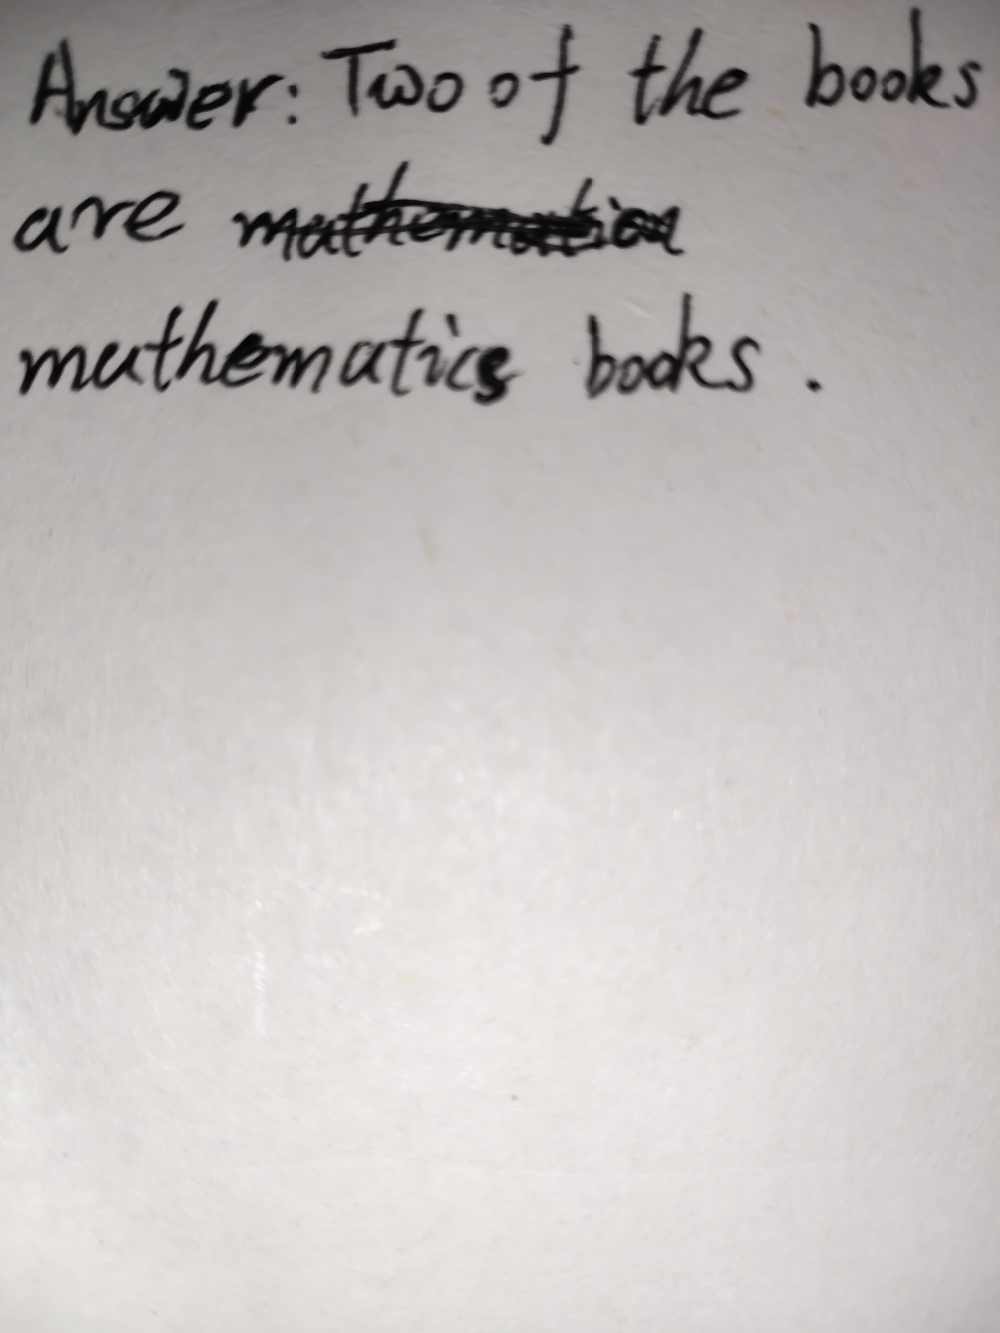 Answer: Two of the books
are
mathematics books.